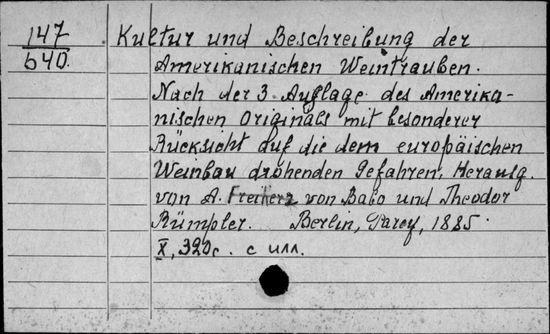 147 Kultur und Beschreibung der
640. Amerikanischen Weintrauben.
Nach der 3. Auflage des Amerika-
nischen Originals mit besonderer
Rücksicht auf die dem europäischen
Weinbau drohenden Gefahren, Herausg.
von A. Freiherr von Babo und Theodor
Rümpler. Berlin, Parey, 1885.
X, 320c. с илл.